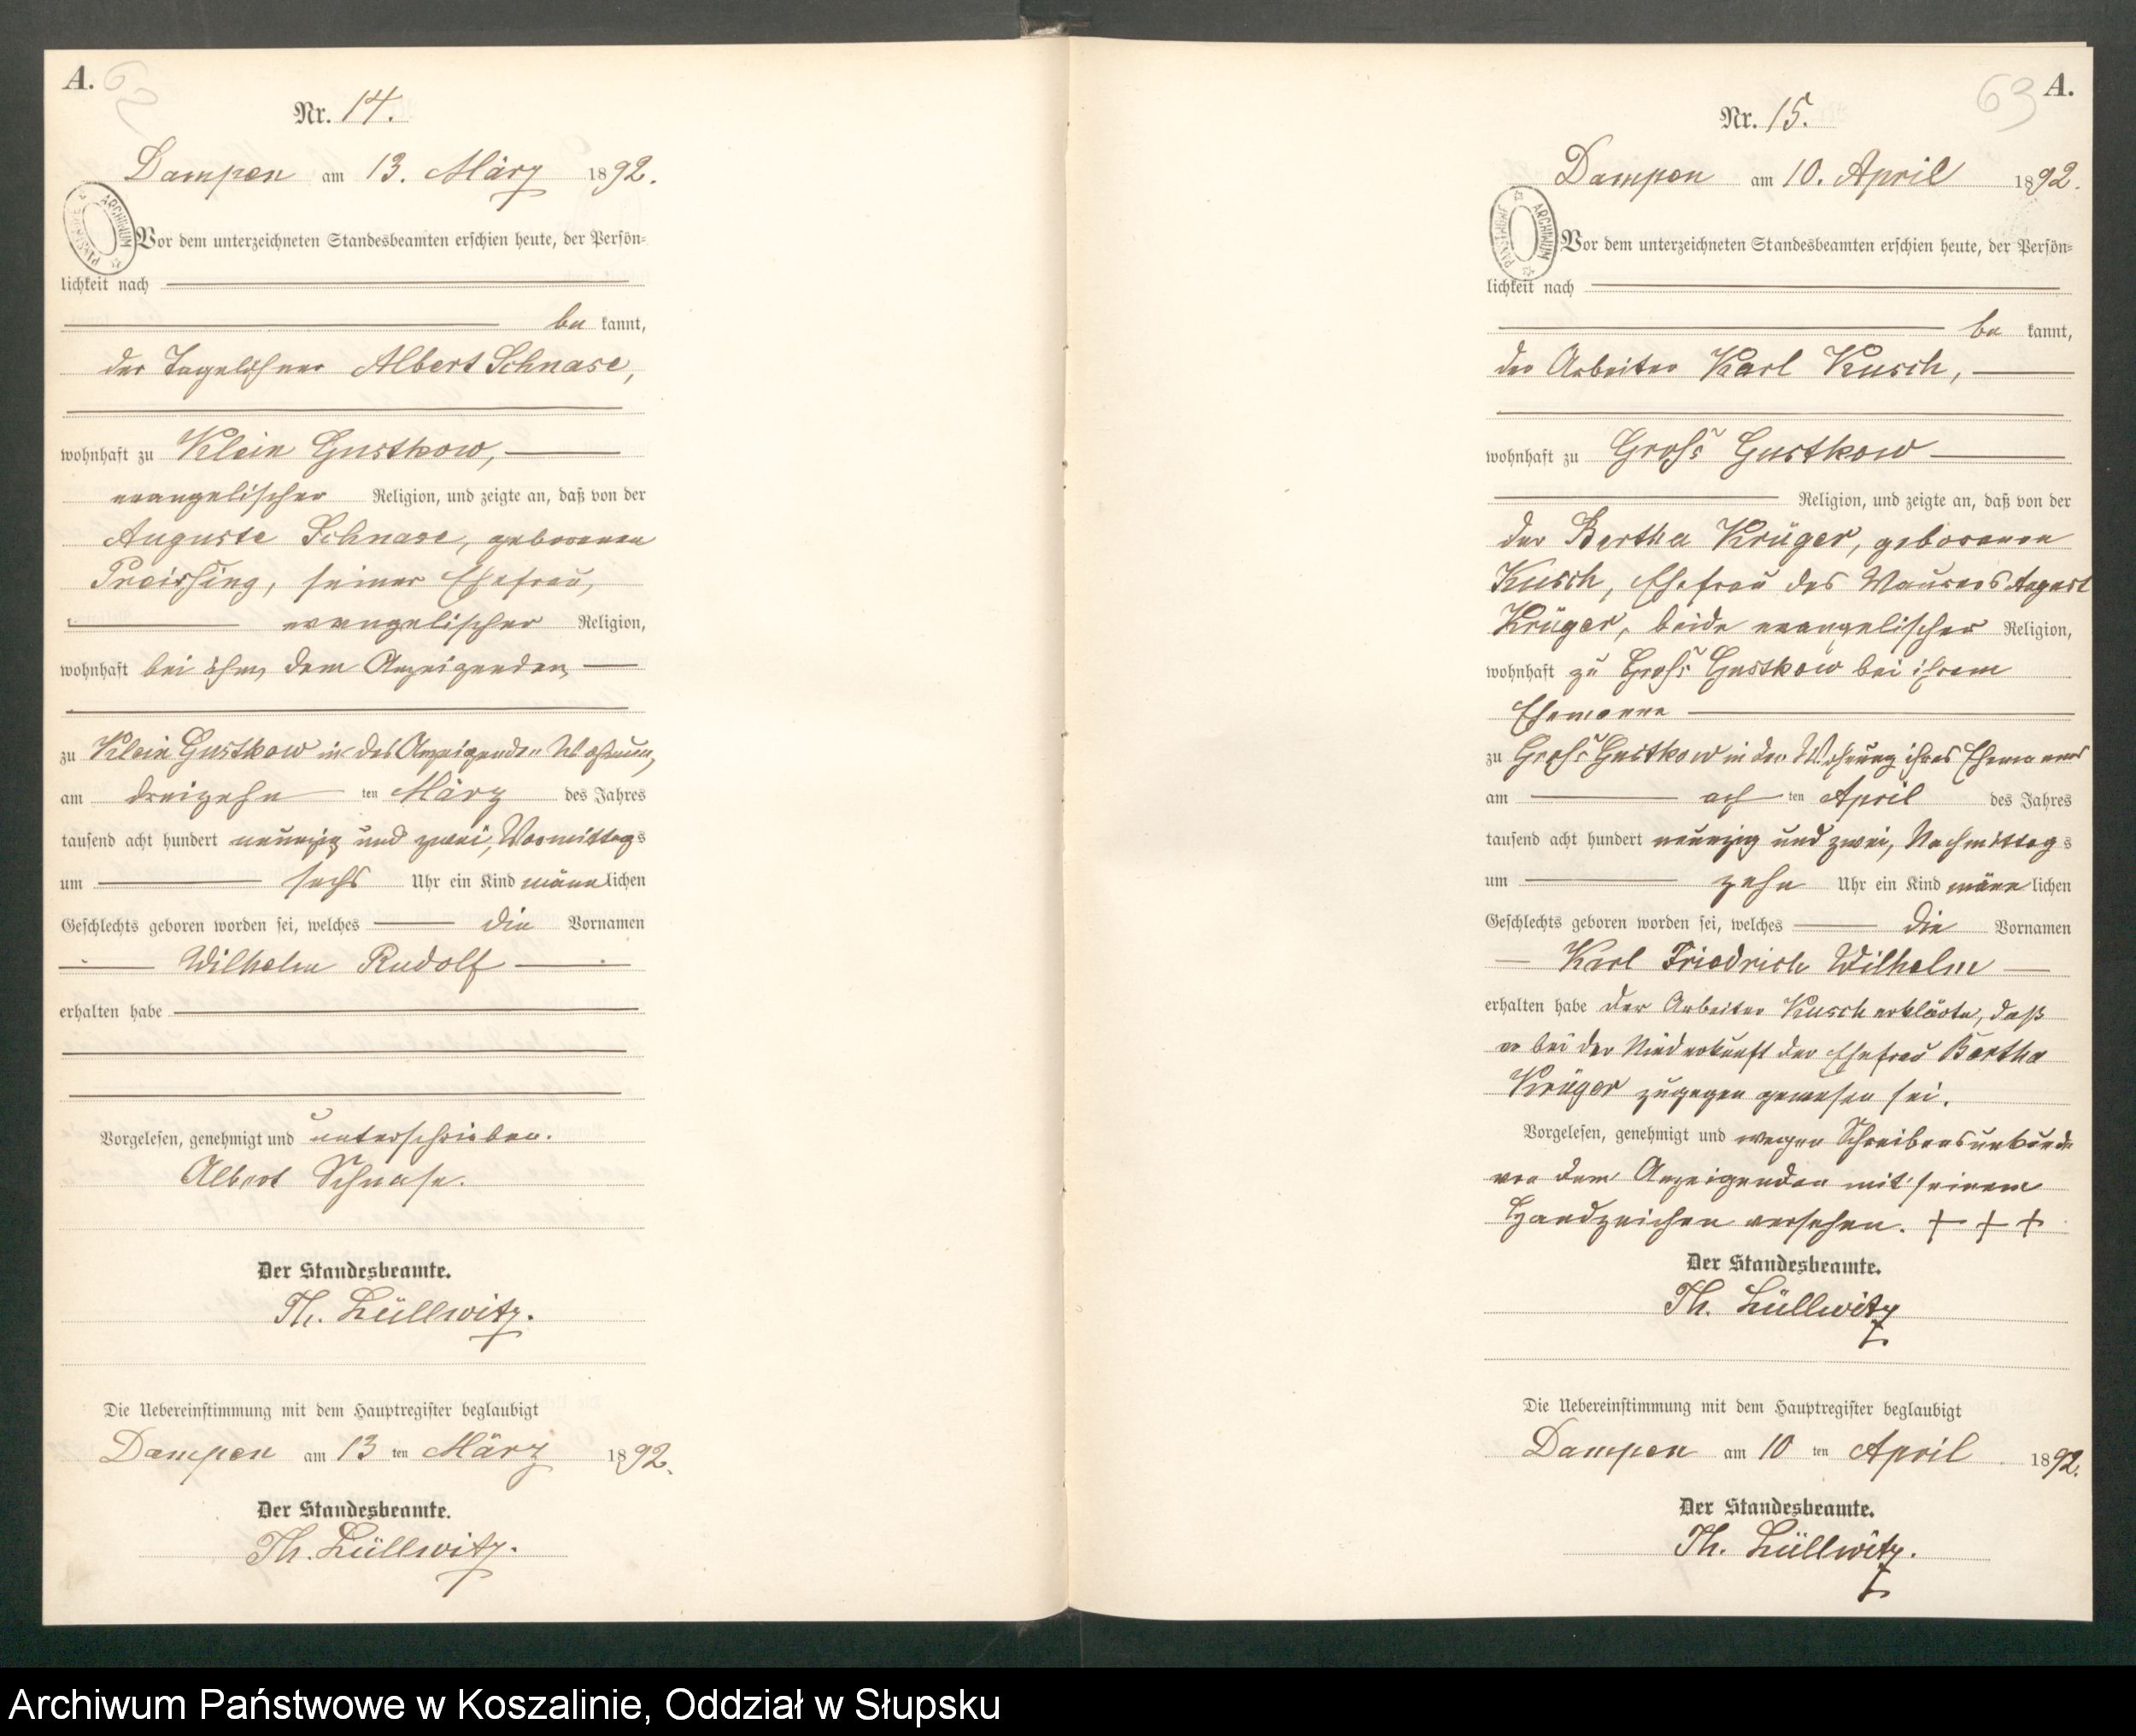 A. 62
Nr. 14.
Dampen am 13. März 1892.
ARCHIWUM PAŃSTWOWE
Vor dem unterzeichneten Standesbeamten erschien heute, der Persön-
lichkeit nach
be kannt,
der Tagelöhner Albert Schnase,
wohnhaft zu Klein Gustkow,
evangelischer Religion, und zeigte an, daß von der
Auguste Schnase, geborenen
Preissing, seiner Ehefrau,
evangelischer Religion,
wohnhaft bei ihm, dem Anzeigenden,
zu Klein Gustkow in des Anzeigenden Wohnung,
am dreizehn ten März des Jahres
tausend acht hundert neunzig und zwei, Vormittags
um sechs Uhr ein Kind männlichen
Geschlechts geboren worden sei, welches die Vornamen
Wilhelm Rudolf
erhalten habe
Vorgelesen, genehmigt und unterschrieben.
Albert Schnase.
Der Standesbeamte.
Th. Lüllwitz.
Die Uebereinstimmung mit dem Hauptregister beglaubigt
Dampen am 13 ten März 1892.
Der Standesbeamte.
Th. Lüllwitz.
63 A.
Nr. 15.
Dampen am 10. April 1892.
ARCHIWUM PAŃSTWOWE
Vor dem unterzeichneten Standesbeamten erschien heute, der Persön-
lichkeit nach
be kannt,
der Arbeiter Karl Kusch,
wohnhaft zu Groß Gustkow
Religion, und zeigte an, daß von der
der Bertha Krüger, geborenen
Kusch, Ehefrau des Maurers August
Krüger, beide evangelischer Religion,
wohnhaft zu Groß Gustkow bei ihrem
Ehemanne
zu Groß Gustkow in der Wohnung ihres Ehemannes
am ach ten April des Jahres
tausend acht hundert neunzig und zwei, Nachmittags
um zehn Uhr ein Kind männlichen
Geschlechts geboren worden sei, welches die Vornamen
Karl Friedrich Wilhelm
erhalten habe der Arbeiter Kusch erklärte, daß
er bei der Niederkunft der Ehefrau Bertha
Krüger zugegen gewesen sei.
Vorgelesen, genehmigt und wegen Schreibensunkunde
von dem Anzeigenden mit seinem
Handzeichen versehen. + + +
Der Standesbeamte.
Th. Lüllwitz
Die Uebereinstimmung mit dem Hauptregister beglaubigt
Dampen am 10 ten April 1892.
Der Standesbeamte.
Th. Lüllwitz.
Archiwum Państwowe w Koszalinie, Oddział w Słupsku